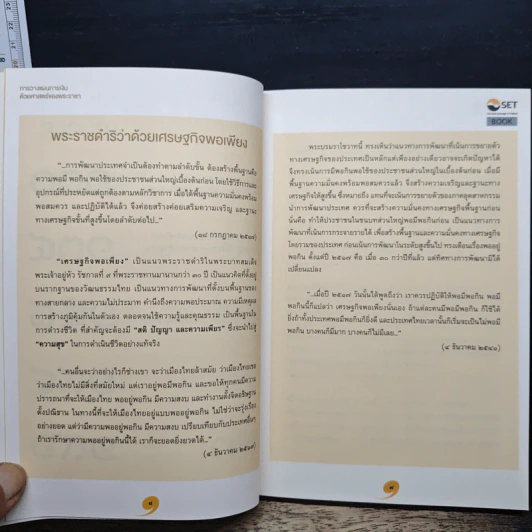 การวางแผนการเงิน
ด้วยศาสตร์ของพระราชา
พระราชดำริว่าด้วยเศรษฐกิจพอเพียง
"...การพัฒนาประเทศจำเป็นต้องทำตามลำดับขั้น ต้องสร้างพื้นฐานคือ
ความพอมี พอกิน พอใช้ของประชาชนส่วนใหญ่เบื้องต้นก่อน โดยใช้วิธีการและ
อุปกรณ์ที่ประหยัดแต่ถูกต้องตามหลักวิชาการ เมื่อได้พื้นฐานความมั่นคงพร้อม
พอสมควร และปฏิบัติได้แล้ว จึงค่อยสร้างค่อยเสริมความเจริญ และฐานะ
ทางเศรษฐกิจขั้นที่สูงขึ้นโดยลำดับต่อไป..."
(๑๘ กรกฎาคม ๒๕๑๗)
"เศรษฐกิจพอเพียง" เป็นแนวพระราชดำริในพระบาทสมเด็จ
พระเจ้าอยู่หัว รัชกาลที่ ๙ ที่พระราชทานมานานกว่า ๓๐ ปี เป็นแนวคิดที่ตั้งอยู่
บนรากฐานของวัฒนธรรมไทย เป็นแนวทางการพัฒนาที่ตั้งบนพื้นฐานของ
ทางสายกลาง และความไม่ประมาท คำนึงถึงความพอประมาณ ความมีเหตุผล
การสร้างภูมิคุ้มกันในตัวเอง ตลอดจนใช้ความรู้และคุณธรรม เป็นพื้นฐานใน
การดำรงชีวิต ที่สำคัญจะต้องมี "สติ ปัญญา และความเพียร" ซึ่งจะนำไปสู่
"ความสุข" ในการดำเนินชีวิตอย่างแท้จริง
"...คนอื่นจะว่าอย่างไรก็ช่างเขา จะว่าเมืองไทยล้าสมัย ว่าเมืองไทยเชย
ว่าเมืองไทยไม่มีสิ่งที่สมัยใหม่ แต่เราอยู่พอมีพอกิน และขอให้ทุกคนมีความ
ปรารถนาที่จะให้เมืองไทย พออยู่พอกิน มีความสงบ และทำงานตั้งจิตอธิษฐาน
ตั้งปณิธาน ในทางนี้ที่จะให้เมืองไทยอยู่แบบพออยู่พอกิน ไม่ใช่ว่าจะรุ่งเรือง
อย่างยอด แต่ว่ามีความพออยู่พอกิน มีความสงบ เปรียบเทียบกับประเทศอื่นๆ
ถ้าเรารักษาความพออยู่พอกินนี้ได้ เราก็จะยอดยิ่งยวดได้..."
(๔ ธันวาคม ๒๕๑๗)
SET
BOOK
พระบรมราโชวาทนี้ ทรงเห็นว่าแนวทางการพัฒนาที่เน้นการขยายตัว
ทางเศรษฐกิจของประเทศเป็นหลักแต่เพียงอย่างเดียวอาจจะเกิดปัญหาได้
จึงทรงเน้นการมีพอกินพอใช้ของประชาชนส่วนใหญ่ในเบื้องต้นก่อน เมื่อมี
พื้นฐานความมั่นคงพร้อมพอสมควรแล้ว จึงสร้างความเจริญและฐานะทาง
เศรษฐกิจให้สูงขึ้น ซึ่งหมายถึง แทนที่จะเน้นการขยายตัวของภาคอุตสาหกรรม
นำการพัฒนาประเทศ ควรที่จะสร้างความมั่นคงทางเศรษฐกิจพื้นฐานก่อน
นั่นคือ ทำให้ประชาชนในชนบทส่วนใหญ่พอมีพอกินก่อน เป็นแนวทางการ
พัฒนาที่เน้นการกระจายรายได้ เพื่อสร้างพื้นฐานและความมั่นคงทางเศรษฐกิจ
โดยรวมของประเทศ ก่อนเน้นการพัฒนาในระดับสูงขึ้นไป ทรงเตือนเรื่องพออยู่
พอกิน ตั้งแต่ปี ๒๕๑๗ คือ เมื่อ ๓๐ กว่าปีที่แล้ว แต่ทิศทางการพัฒนามิได้
เปลี่ยนแปลง
"...เมื่อปี ๒๕๑๗ วันนั้นได้พูดถึงว่า เราควรปฏิบัติให้พอมีพอกิน พอมี
พอกินนี้ก็แปลว่า เศรษฐกิจพอเพียงนั่นเอง ถ้าแต่ละคนมีพอมีพอกิน ก็ใช้ได้
ยิ่งถ้าทั้งประเทศพอมีพอกินก็ยิ่งดี และประเทศไทยเวลานั้นก็เริ่มจะเป็นไม่พอมี
พอกิน บางคนก็มีมาก บางคนก็ไม่มีเลย..."
(๔ ธันวาคม ๒๕๔๑)